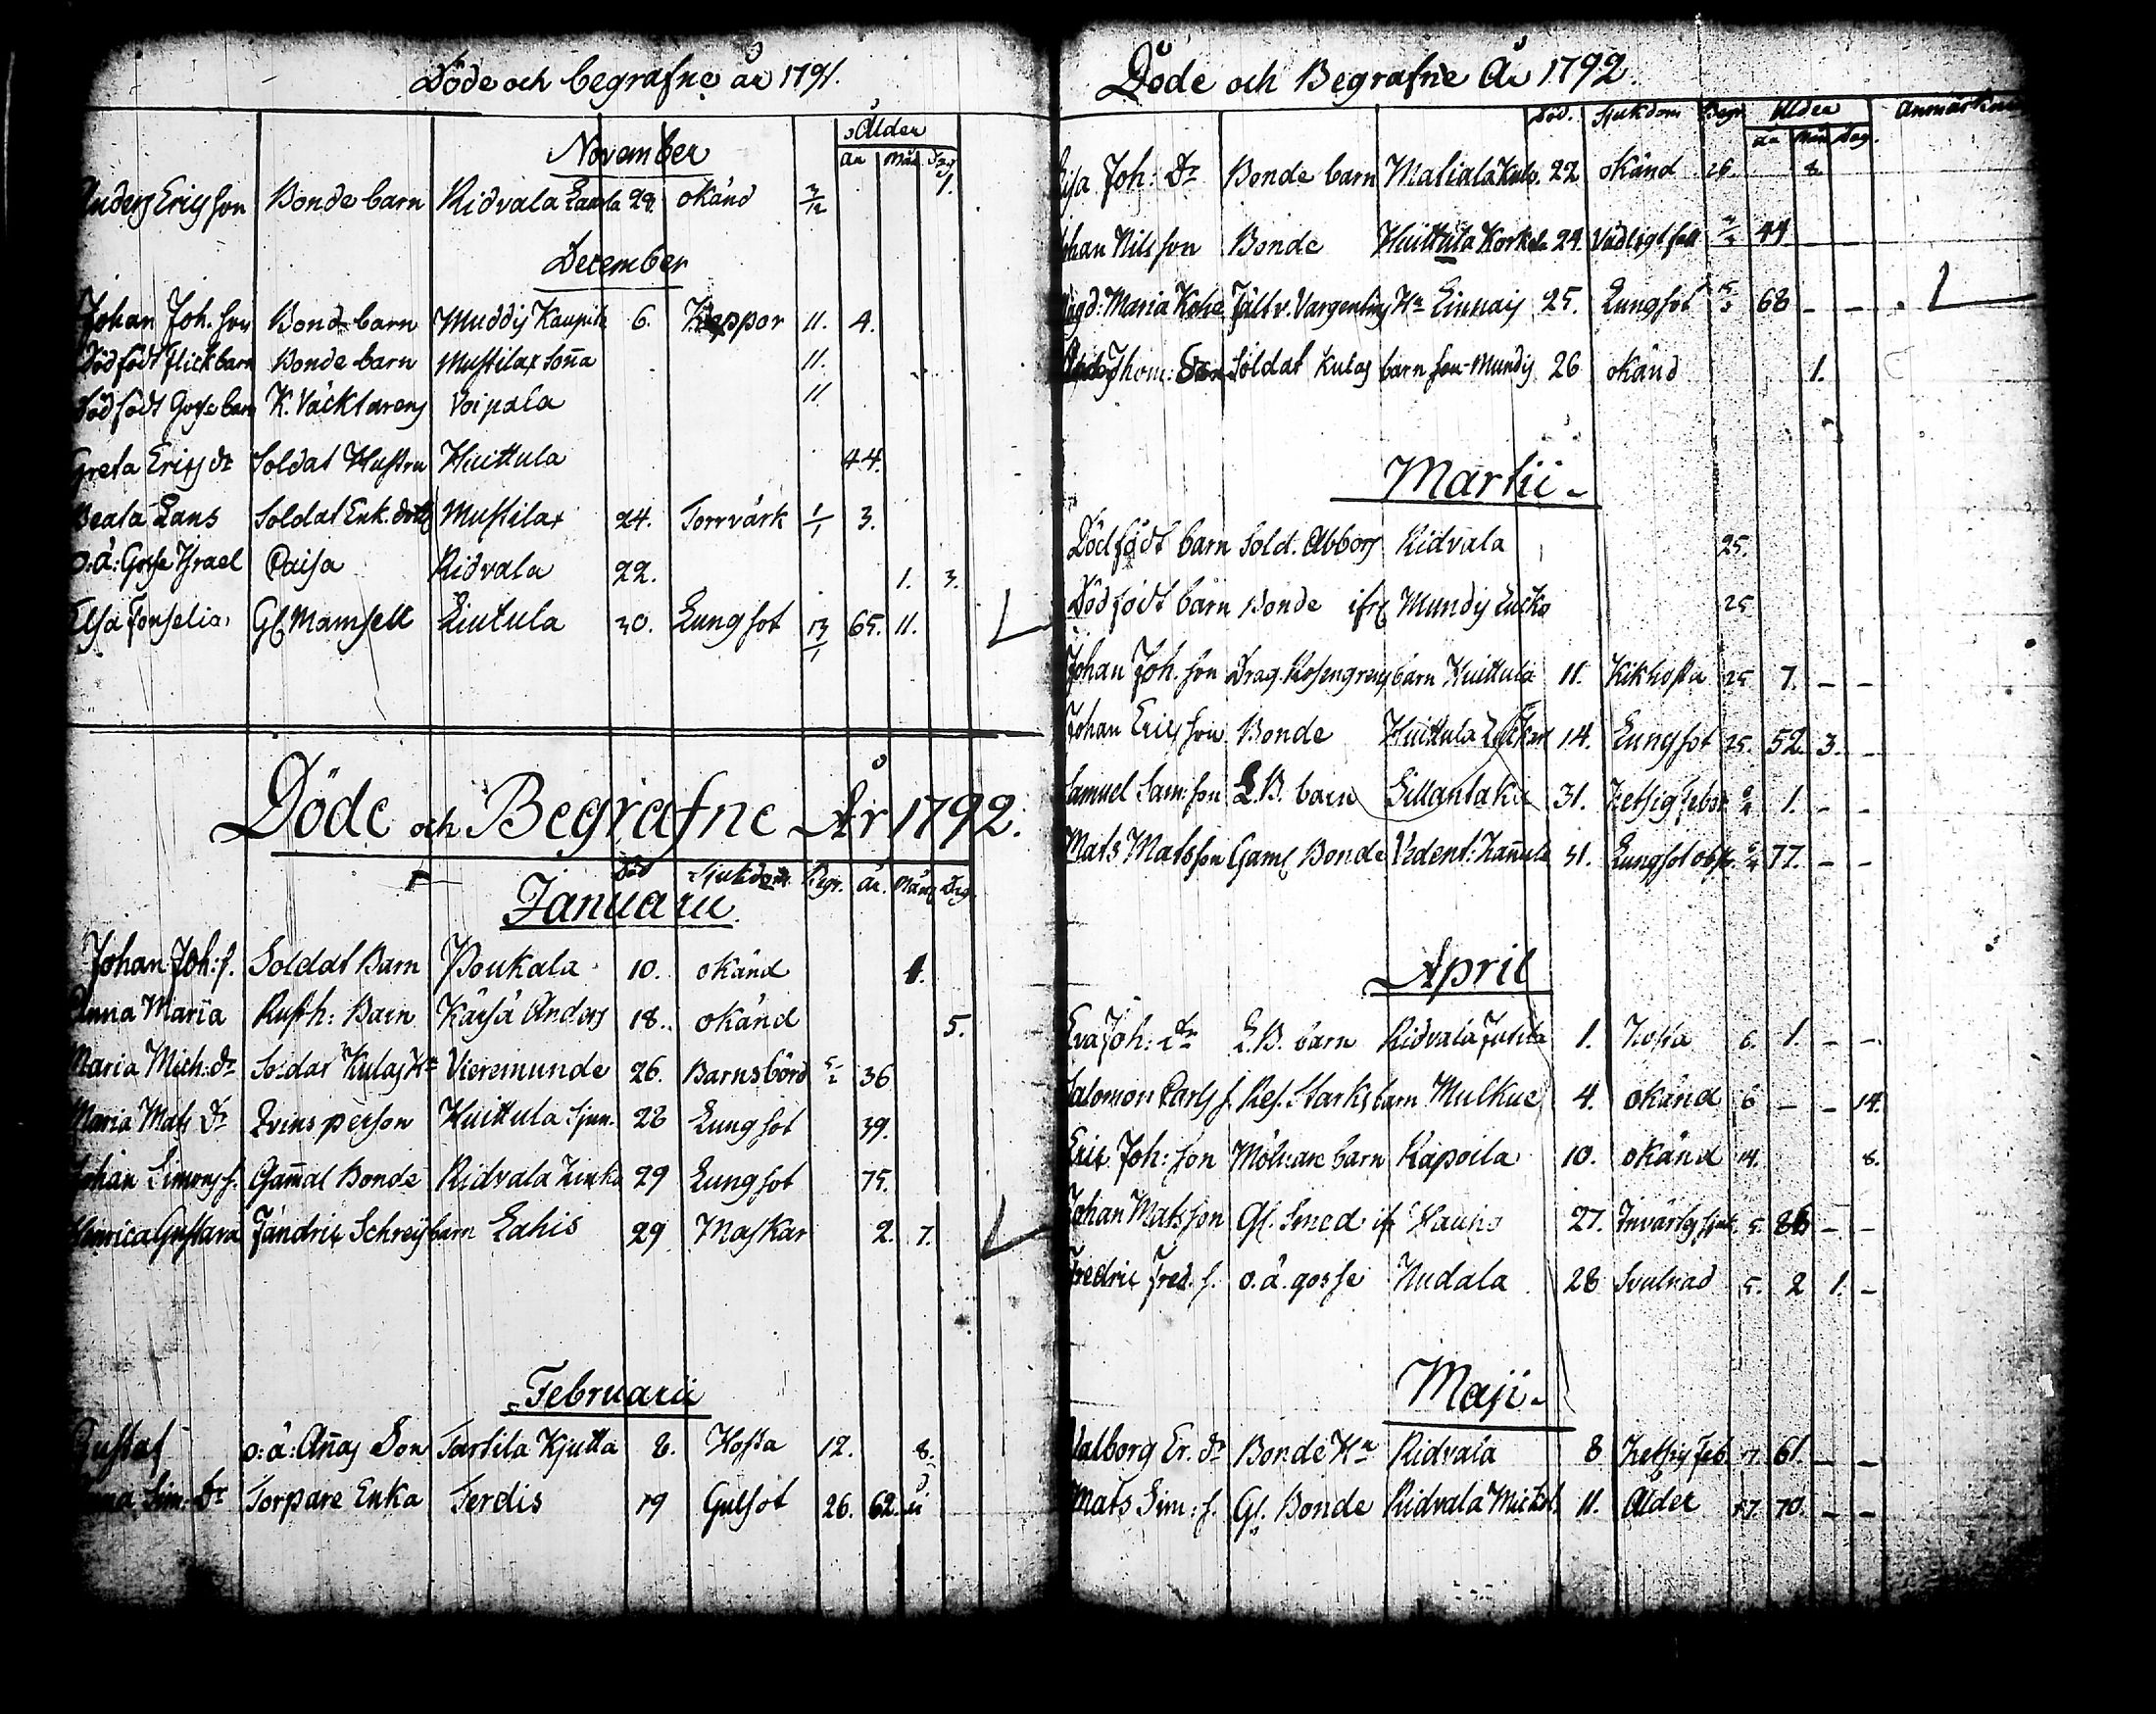 Döde och begrafne år 1791.
Ålder
år Mån. Dag
November
Anders Ericsson Bonde barn Ridvala Laurla 28. okänd 3/12 1.
December
Johan Joh. son Bonde barn Muddis Kaupila 6. Koppor 11. 4.
Dödfödt flickbarn Bonde barn Mustilax 11.
Dödfödt Gossebarn K. Väcktarens Voipala 11
Greta Erics dr Soldat Hustru Huittula 44.
Beata Lans Soldat Enk. dott Mustilax 24. Torrvärk 1/1 3.
o: ä: Gosse Israel Caisa Ridvala 22. 1. 3.
Elsa Gl Mamsell Liutula 30. Lungsot 13/1 65. 11.
Döde och Begrafne År 1792.
Död Sjukdom Begr. år. Mån Dag.
Januarii
Johan Joh: s. Soldat Barn Poukala 10. okänd 1.
Anna Maria Rusth: Barn Kärsä Anders 18. okänd 5.
Maria Mich: dr Soldat Kulas Hu Vieremunde 26. Barnsbörd 5/2 36
Maria Mats Dr Qvins person Huittula 28 Lungsot 39.
Johan Simons s. Gammal Bonde Ridvala 29 Lungsot 75.
Henrica Gustava Fändric Schreijs barn Lahis 29 Maskar 2. 7.
Februarii
Gustaf o: ä: Annas Son Tartila Kjutta 8. Hosta 12. 8.
Anna Sim: Dr Torpare Enka Terdis 19 Gulsot 26. 62. 11
Döde och Begrafne År 1792.
Död. Sjukdom Begr. Ålder Anmärkn
år Mån Dag.
Lisa Joh: Dr Bonde barn Matiala 22 okänd 26. 8.
Johan Nilsson Bonde Huittula Korkela 24. Vådligt fall 4/3 44 _ _
Magd: Maria Fält v. Hu Linnais 25. Lungsot 5/3 68 _ _
Thom: Son Soldat Kulas barn Mundis 26 okänd 1.
Martii
Dödfödt barn Sold. Abbors Ridvala 25.
Dödfödt barn Bonde ifr Mundis 25.
Johan Joh. son Drag. Rosengrens barn Huittula 11. Kikhosta 25 7. _ _
Johan Erics son Bonde Huittula 14. Lungsot 25. 52. 3. _
Samuel Sam: son L. B. barn Sillantaka 31. Hetsig feber 9/4 1. _ _
Mats Matsson Gaml Bonde Vedent: Hannula 31. Lungsot 9/4 77. _ _
April
Eva Joh: Dr L. B. barn Ridvala Jutila 1. Hosta 6. 1. _ _
Salomon Carls s. Res. Starks barn Mulkue 4. okänd 6 _ _ 14.
Eric Joh: son Mölnare barn Kapoila 10. okänd 14. 8.
Johan Matsson Gl. Smed ifr Hauho 27. Invärtes sjuk. 5. 86 _ _
Fredric Fred. s. o. ä. gosse Nudala 28 Svulnad 5. 2 1. _
Maji
Valborg Er. dr Bonde Hu Ridvala 8 Hetsig feb. 17. 61. _ _
Mats Sim: s. Gl. Bonde Ridvala Michel 11. Ålder 17. 70. _ _